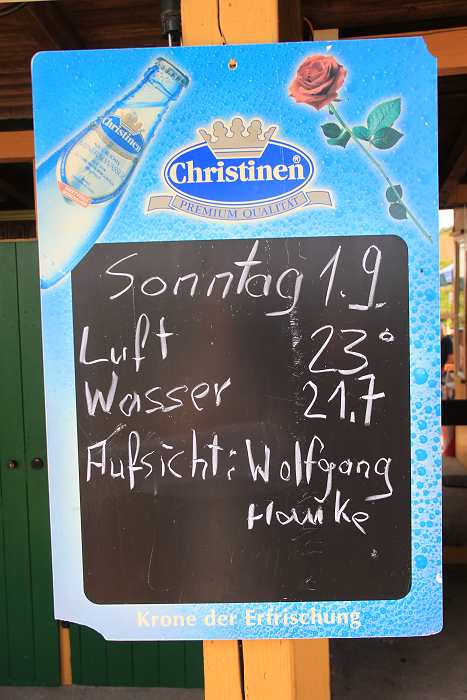 Christinen
Christinen®
PREMIUM QUALITÄT
Sonntag 1.9
Luft 23°
Wasser 21,7
Aufsicht: Wolfgang
Hawke
Krone der Erfrischung